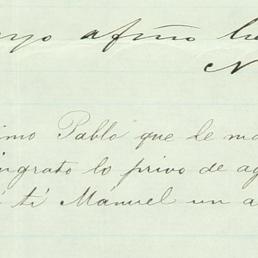 afmo
N
imo Pablo que le ma
ingrato lo privo de ag
á ti Manuel un a